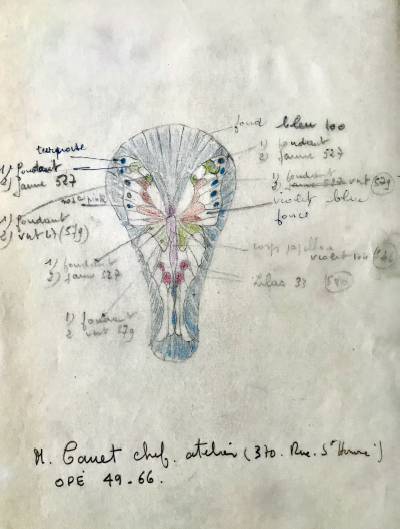 fond bleu 100
turquoise
1) fondant
2) jaune 527
1) fondant
2) jaune 527
1) fondant
2) vert 579
violet bleu
foncé
1) fondant
2) vert 27 (579)
1) fondant
2) jaune 527
corps papillon
violet
Lilas 33 (580)
1) fondant
2 vert 579
M. Canet chef. atelier (370. Rue. St Honoré)
OPE 49-66.